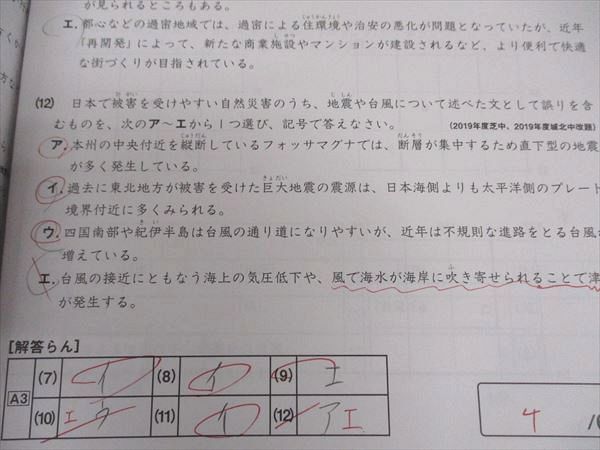 が見られるところもある。
エ. 都心などの過密地域では、過密による住環境や治安の悪化が問題となっていたが、近年
「再開発」によって、新たな商業施設やマンションが建設されるなど、より便利で快適
な街づくりが目指されている。
(12) 日本で被害を受けやすい自然災害のうち、地震や台風について述べた文として誤りを含
むものを、次のア〜エから1つ選び、記号で答えなさい。 (2019年度芝中、2019年度城北中改題)
ア. 本州の中央付近を縦断しているフォッサマグナでは、断層が集中するため直下型の地震
が多く発生している。
イ. 過去に東北地方が被害を受けた巨大地震の震源は、日本海側よりも太平洋側のプレート
境界付近に多くみられる。
ウ. 四国南部や紀伊半島は台風の通り道になりやすいが、近年は不規則な進路をとる台風
増えている。
エ. 台風の接近にともなう海上の気圧低下や、風で海水が海岸に吹き寄せられることで津
が発生する。
[解答らん]
A3
(7) イ (8) イ (9) エ
(10) エ ウ (11) イ (12) ア エ
4